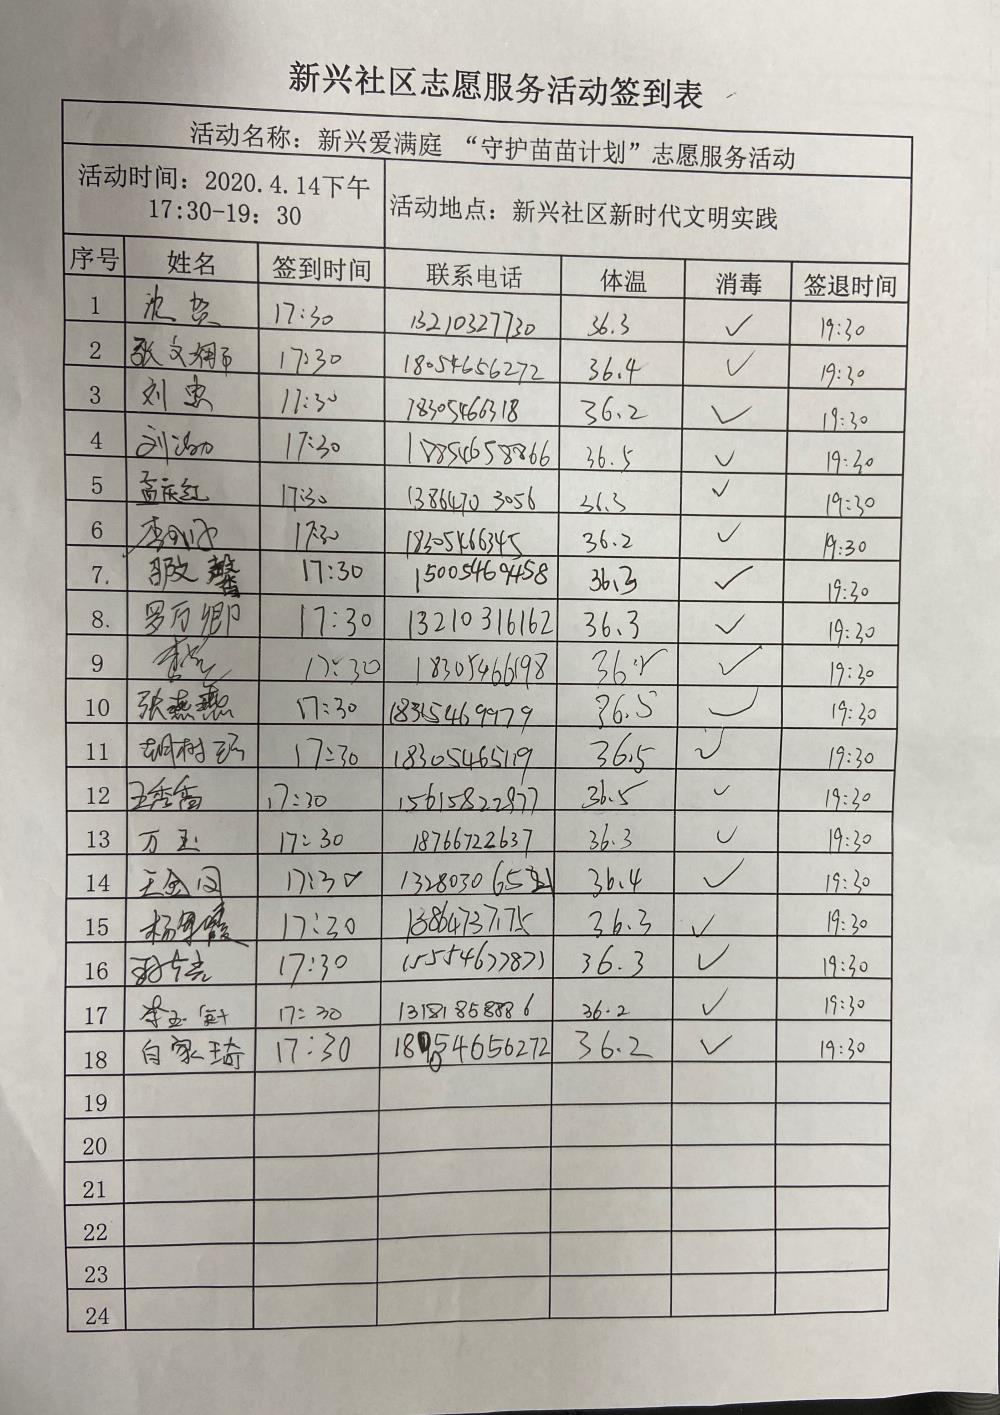 新兴社区志愿服务活动签到表
活动名称：新兴爱满庭 “守护苗苗计划”志愿服务活动
活动时间：2020.4.14下午 17:30-19：30 活动地点：新兴社区新时代文明实践
序号 姓名 签到时间 联系电话 体温 消毒 签退时间
1 沈贺 17:30 13210327730 36.3 ✓ 19:30
2 张文娟 17:30 18054656272 36.4 ✓ 19:30
3 刘忠 17:30 18305466318 36.2 ✓ 19:30
4 17:30 18854658866 36.5 ✓ 19:30
5 孟庆红 17:30 13864703056 36.3 ✓ 19:30
6 17:30 18305466345 36.2 ✓ 19:30
7. 17:30 15005469458 36.3 ✓ 19:30
8. 罗万卿 17:30 13210316162 36.3 ✓ 19:30
9 17:30 18305466198 ✓ 19:30
10 张燕燕 17:30 36.5 ✓ 19:30
11 17:30 18305465119 36.5 ✓ 19:30
12 王秀香 17:30 15615822977 36.5 ✓ 19:30
13 万玉 17:30 18766722637 36.3 ✓ 19:30
14 17:30 36.4 ✓ 19:30
15 杨军霞 17:30 13864737175 36.3 ✓ 19:30
16 17:30 15554677871 36.3 ✓ 19:30
17 17:30 13181858886 36.2 ✓ 19:30
18 白家琦 17:30 18054656272 36.2 ✓ 19:30
19
20
21
22
23
24